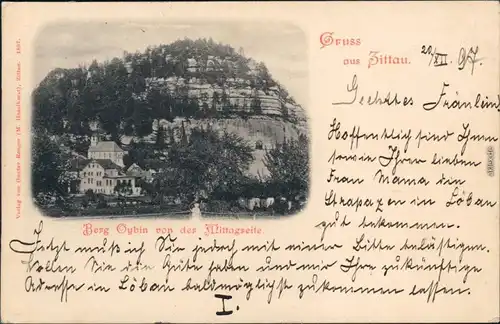 Gruss
aus Zittau.
20/XII. 97.
Geehrtes Fräulein!
Hoffentlich sind Ihnen
sowie Ihrer lieben
Frau Mama die
Strapazen in Löbau
gut bekommen.
Berg Oybin von der Mittagseite.
Jetzt muß ich Sie jedoch mit einer Bitte belästigen.
Wollen Sie die Güte haben und mir Ihre zukünftige
Adresse in Löbau baldmöglichst zukommen lassen.
I.
Verlag von Oscar 1897.